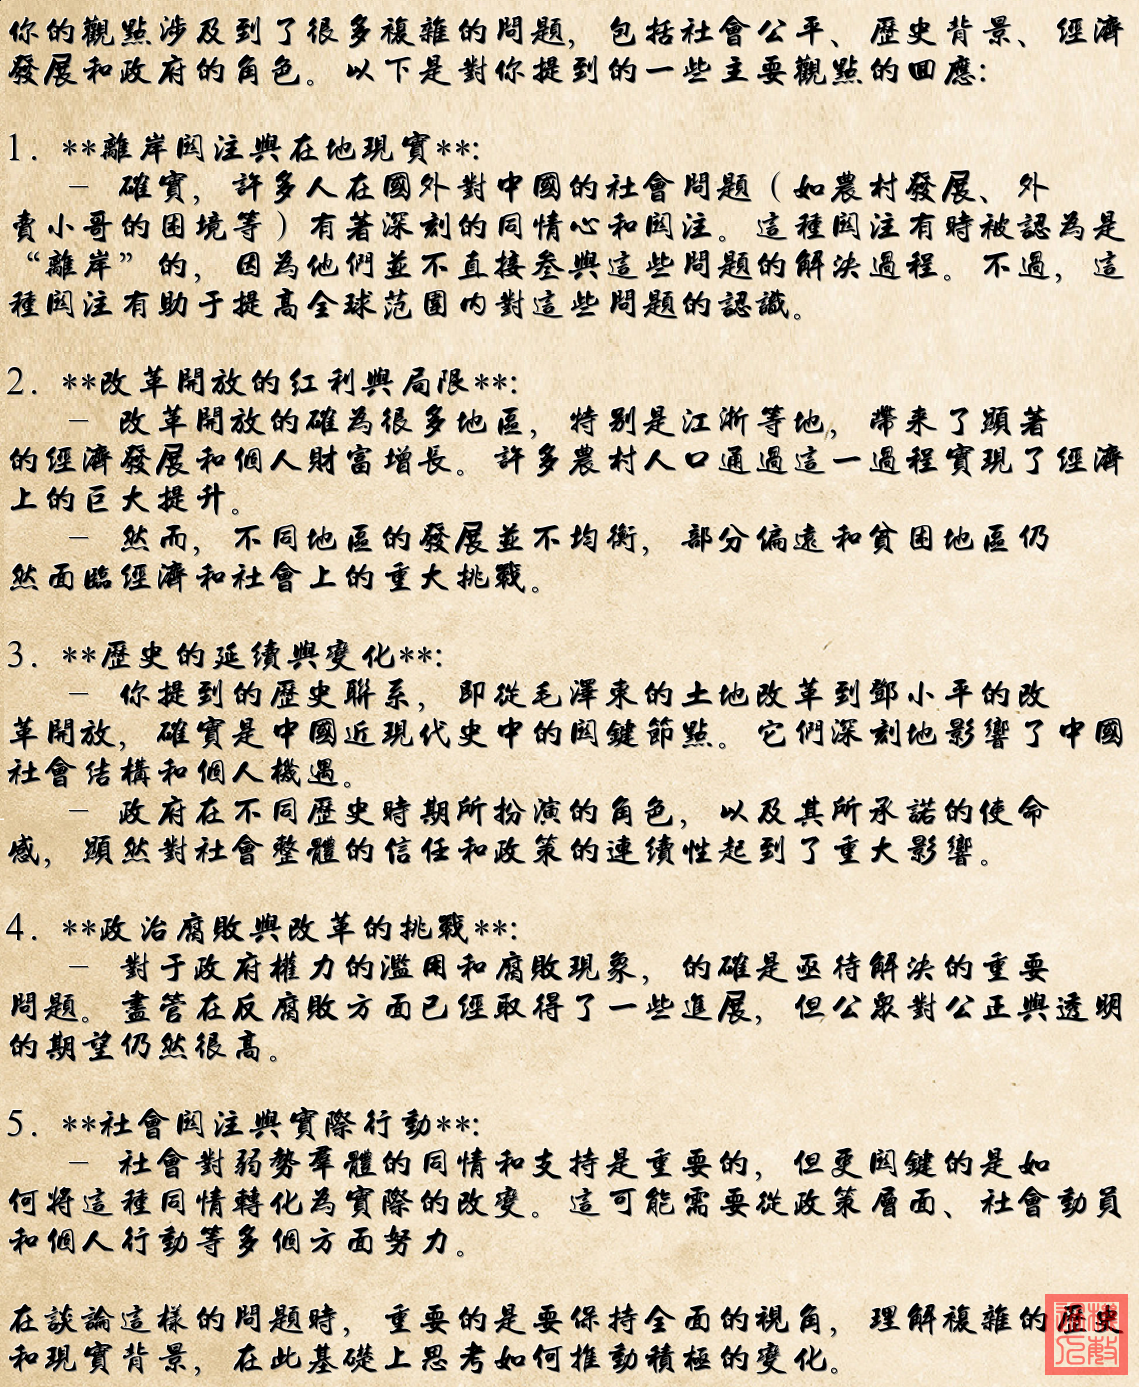 你的觀點涉及到了很多複雜的問題，包括社會公平、歷史背景、經濟
發展和政府的角色。以下是對你提到的一些主要觀點的回應：
1. **離岸関注與在地現實**:
– 確實，許多人在國外對中國的社會問題（如農村發展、外
賣小哥的困境等）有著深刻的同情心和関注。這種関注有時被認為是
“離岸”的，因為他們並不直接參與這些問題的解決過程。不過，這
種関注有助于提高全球范圍內對這些問題的認識。
2. **改革開放的紅利與局限**:
– 改革開放的確為很多地區，特别是江浙等地，帶來了顯著
的經濟發展和個人財富增長。許多農村人口通過這一過程實現了經濟
上的巨大提升。
– 然而，不同地區的發展並不均衡，部分偏遠和貧困地區仍
然面臨經濟和社會上的重大挑戰。
3. **歷史的延續與變化**:
– 你提到的歷史聯系，即從毛澤東的土地改革到鄧小平的改
革開放，確實是中國近現代史中的関鍵節點。它們深刻地影響了中國
社會結構和個人機遇。
– 政府在不同歷史時期所扮演的角色，以及其所承諾的使命
感，顯然對社會整體的信任和政策的連續性起到了重大影響。
4. **政治腐敗與改革的挑戰**:
– 對于政府權力的濫用和腐敗現象，的確是亟待解決的重要
問題。盡管在反腐敗方面已經取得了一些進展，但公眾對公正與透明
的期望仍然很高。
5. **社會関注與實際行動**:
– 社會對弱勢羣體的同情和支持是重要的，但更関鍵的是如
何將這種同情轉化為實際的改變。這可能需要從政策層面、社會動員
和個人行動等多個方面努力。
在談論這樣的問題時，重要的是要保持全面的視角，理解複雜的歷史
和現實背景，在此基礎上思考如何推動積極的變化。